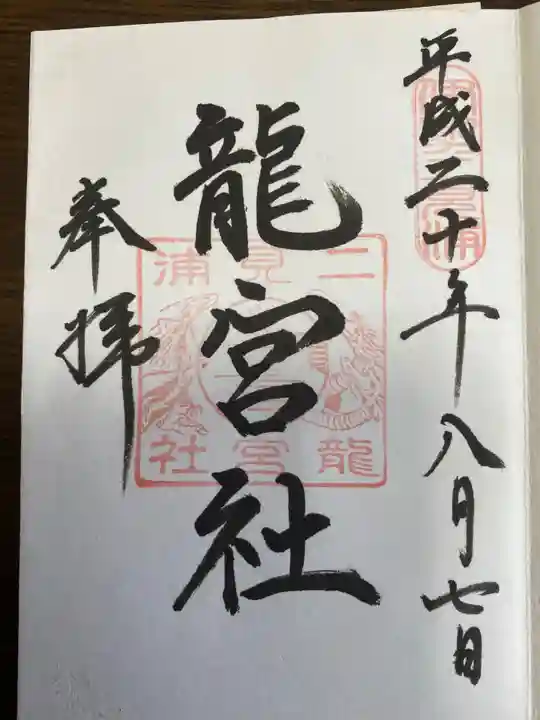 平成二十年八月七日
龍宮社
奉拝
二見浦
龍宮社